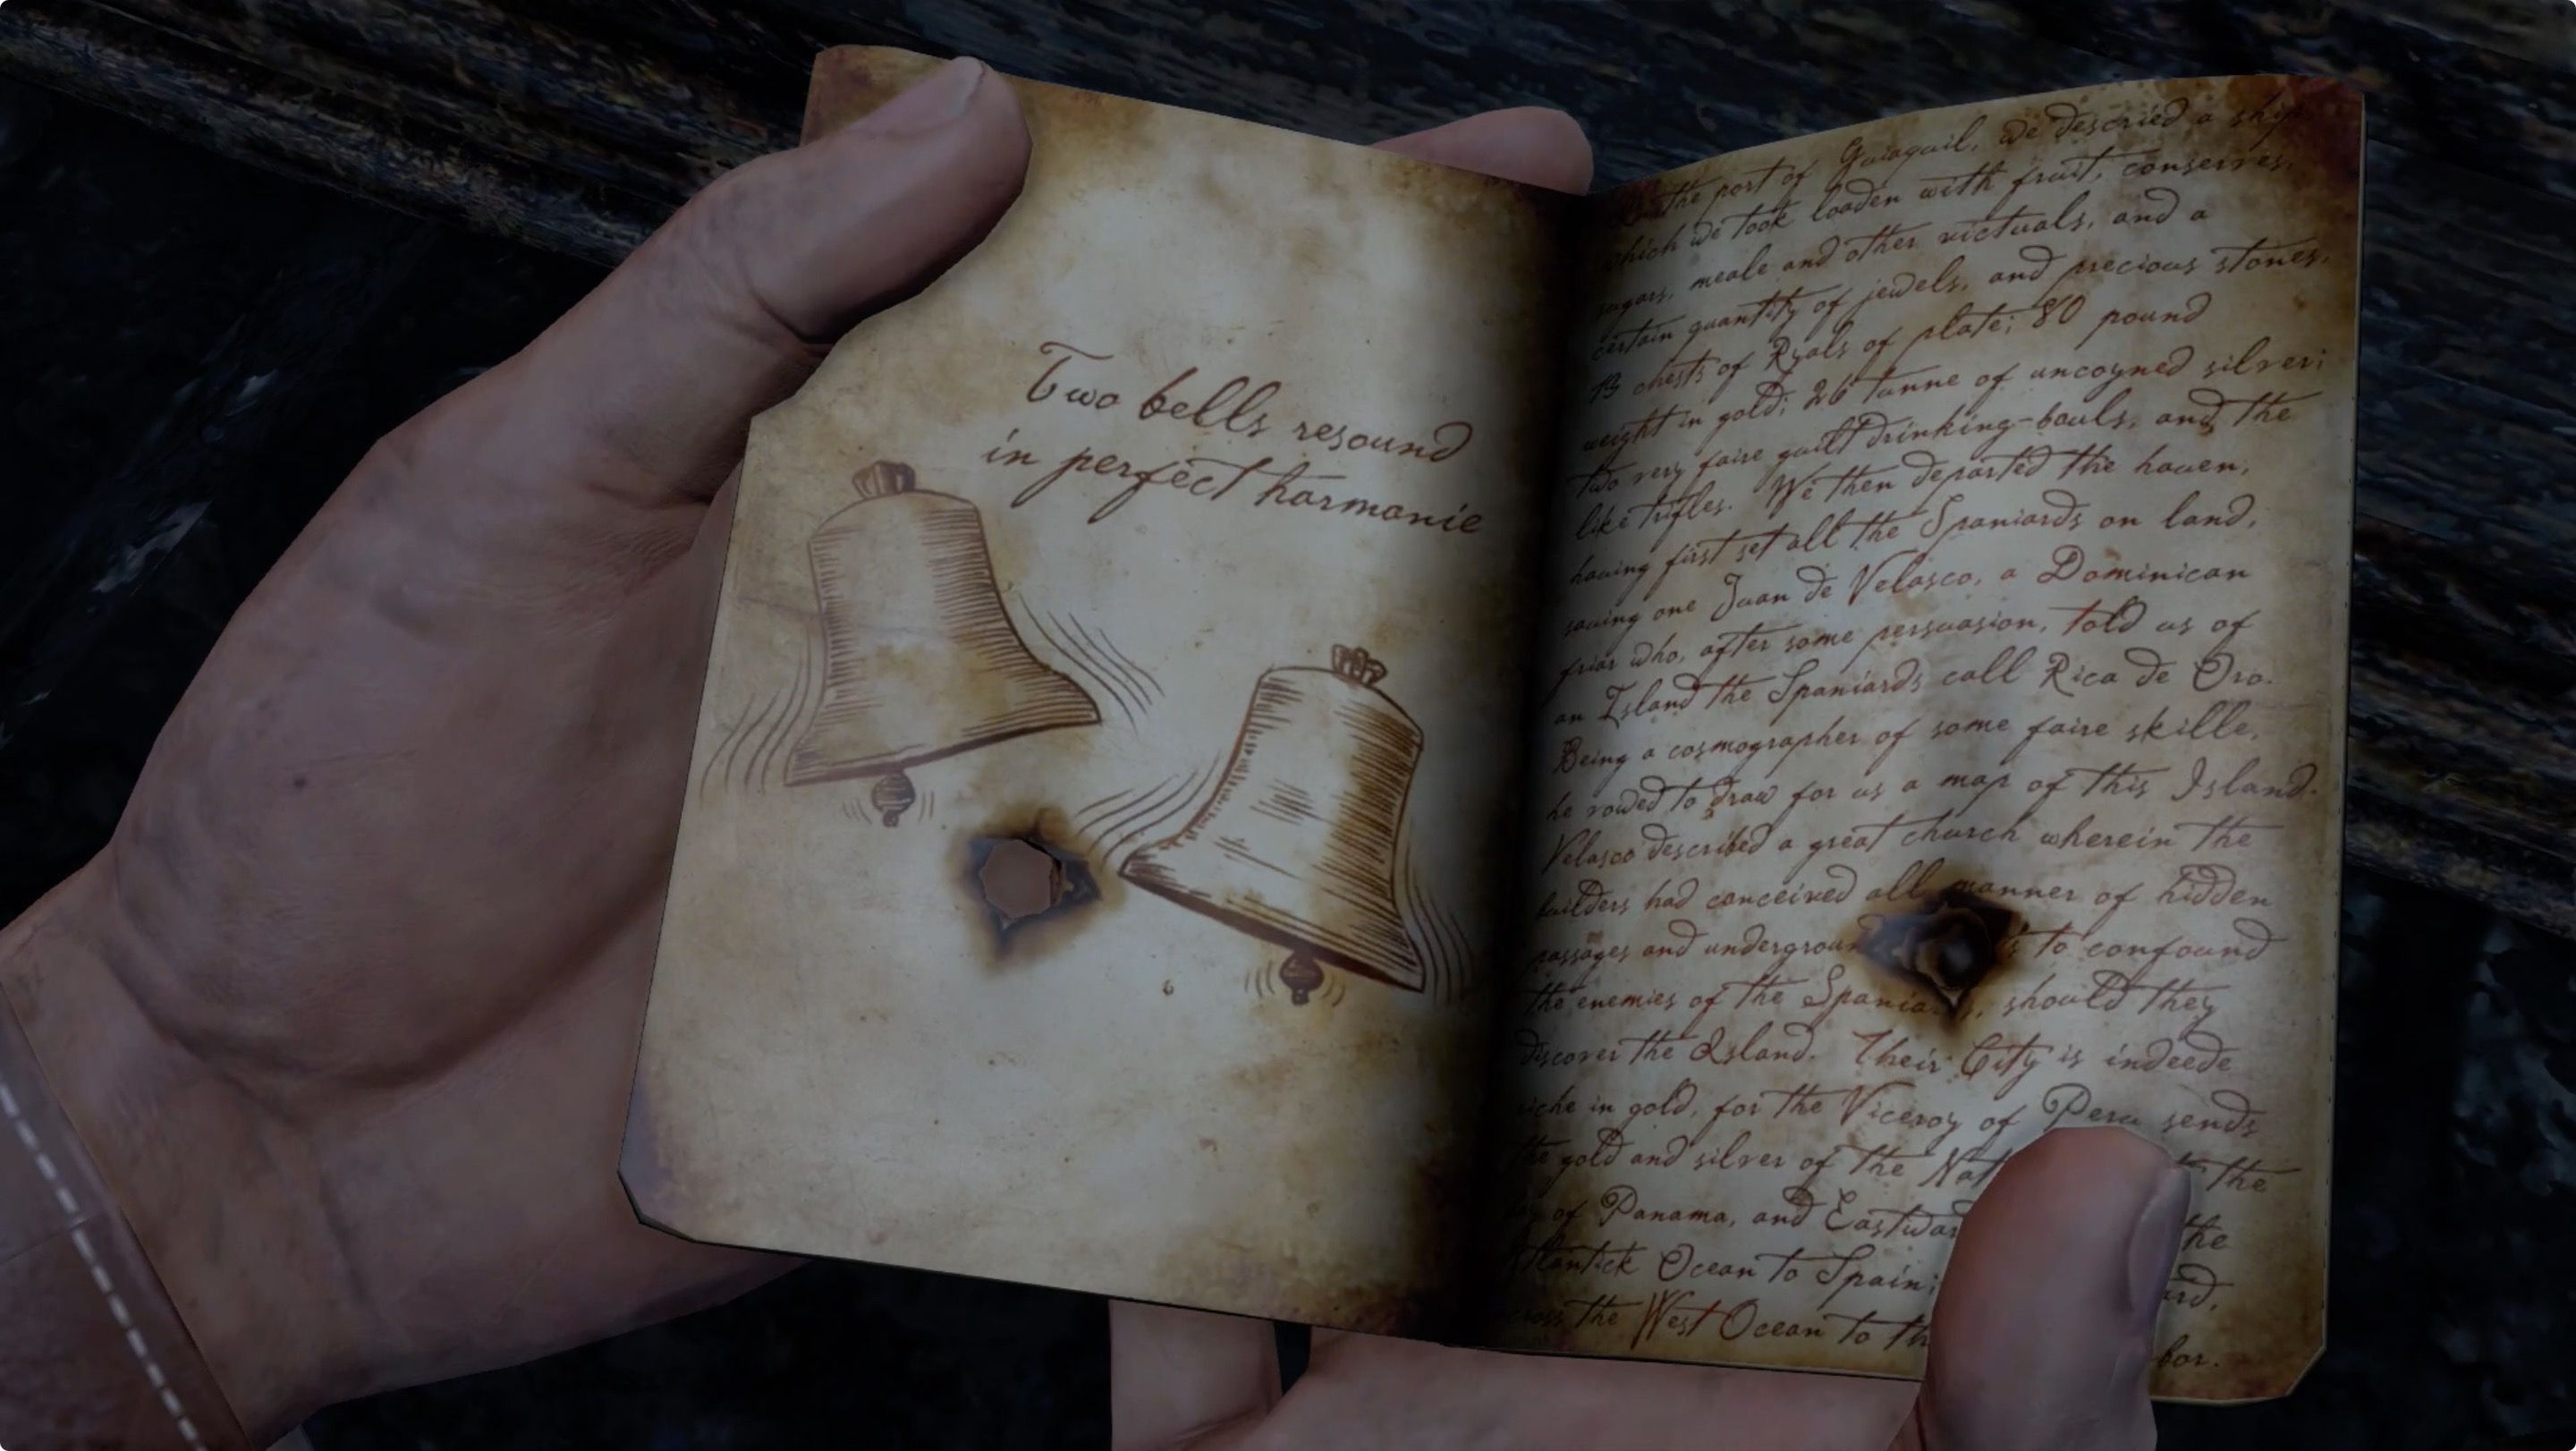 Two bells resound
in perfect harmonie
the port of Guiaquil, we descried a ship
which we took loaden with fruit, conserves,
sugars, meale and other victuals, and a
certain quantity of jewels, and precious stones,
13 chests of Ryals of plate; 80 pound
weight in gold; 26 tunne of uncoyned silver;
two very faire guilt drinking-bouls, and the
like trifles. We then departed the hauen,
hauing first set all the Spaniards on land,
sauing one Juan de Velasco, a Dominican
friar who, after some persuasion, told us of
an Island the Spaniards call Rica de Oro.
Being a cosmographer of some faire skille,
he vowed to draw for us a map of this Island.
Velasco described a great church wherein the
builders had conceived all manner of hidden
passages and to confound
the enemies of the should they
discover the Island. Their City is indeede
riche in gold, for the Viceroy of Peru sends
the gold and silver of the the
of Panama, and the
Atlantick Ocean to Spain;
across the West Ocean to